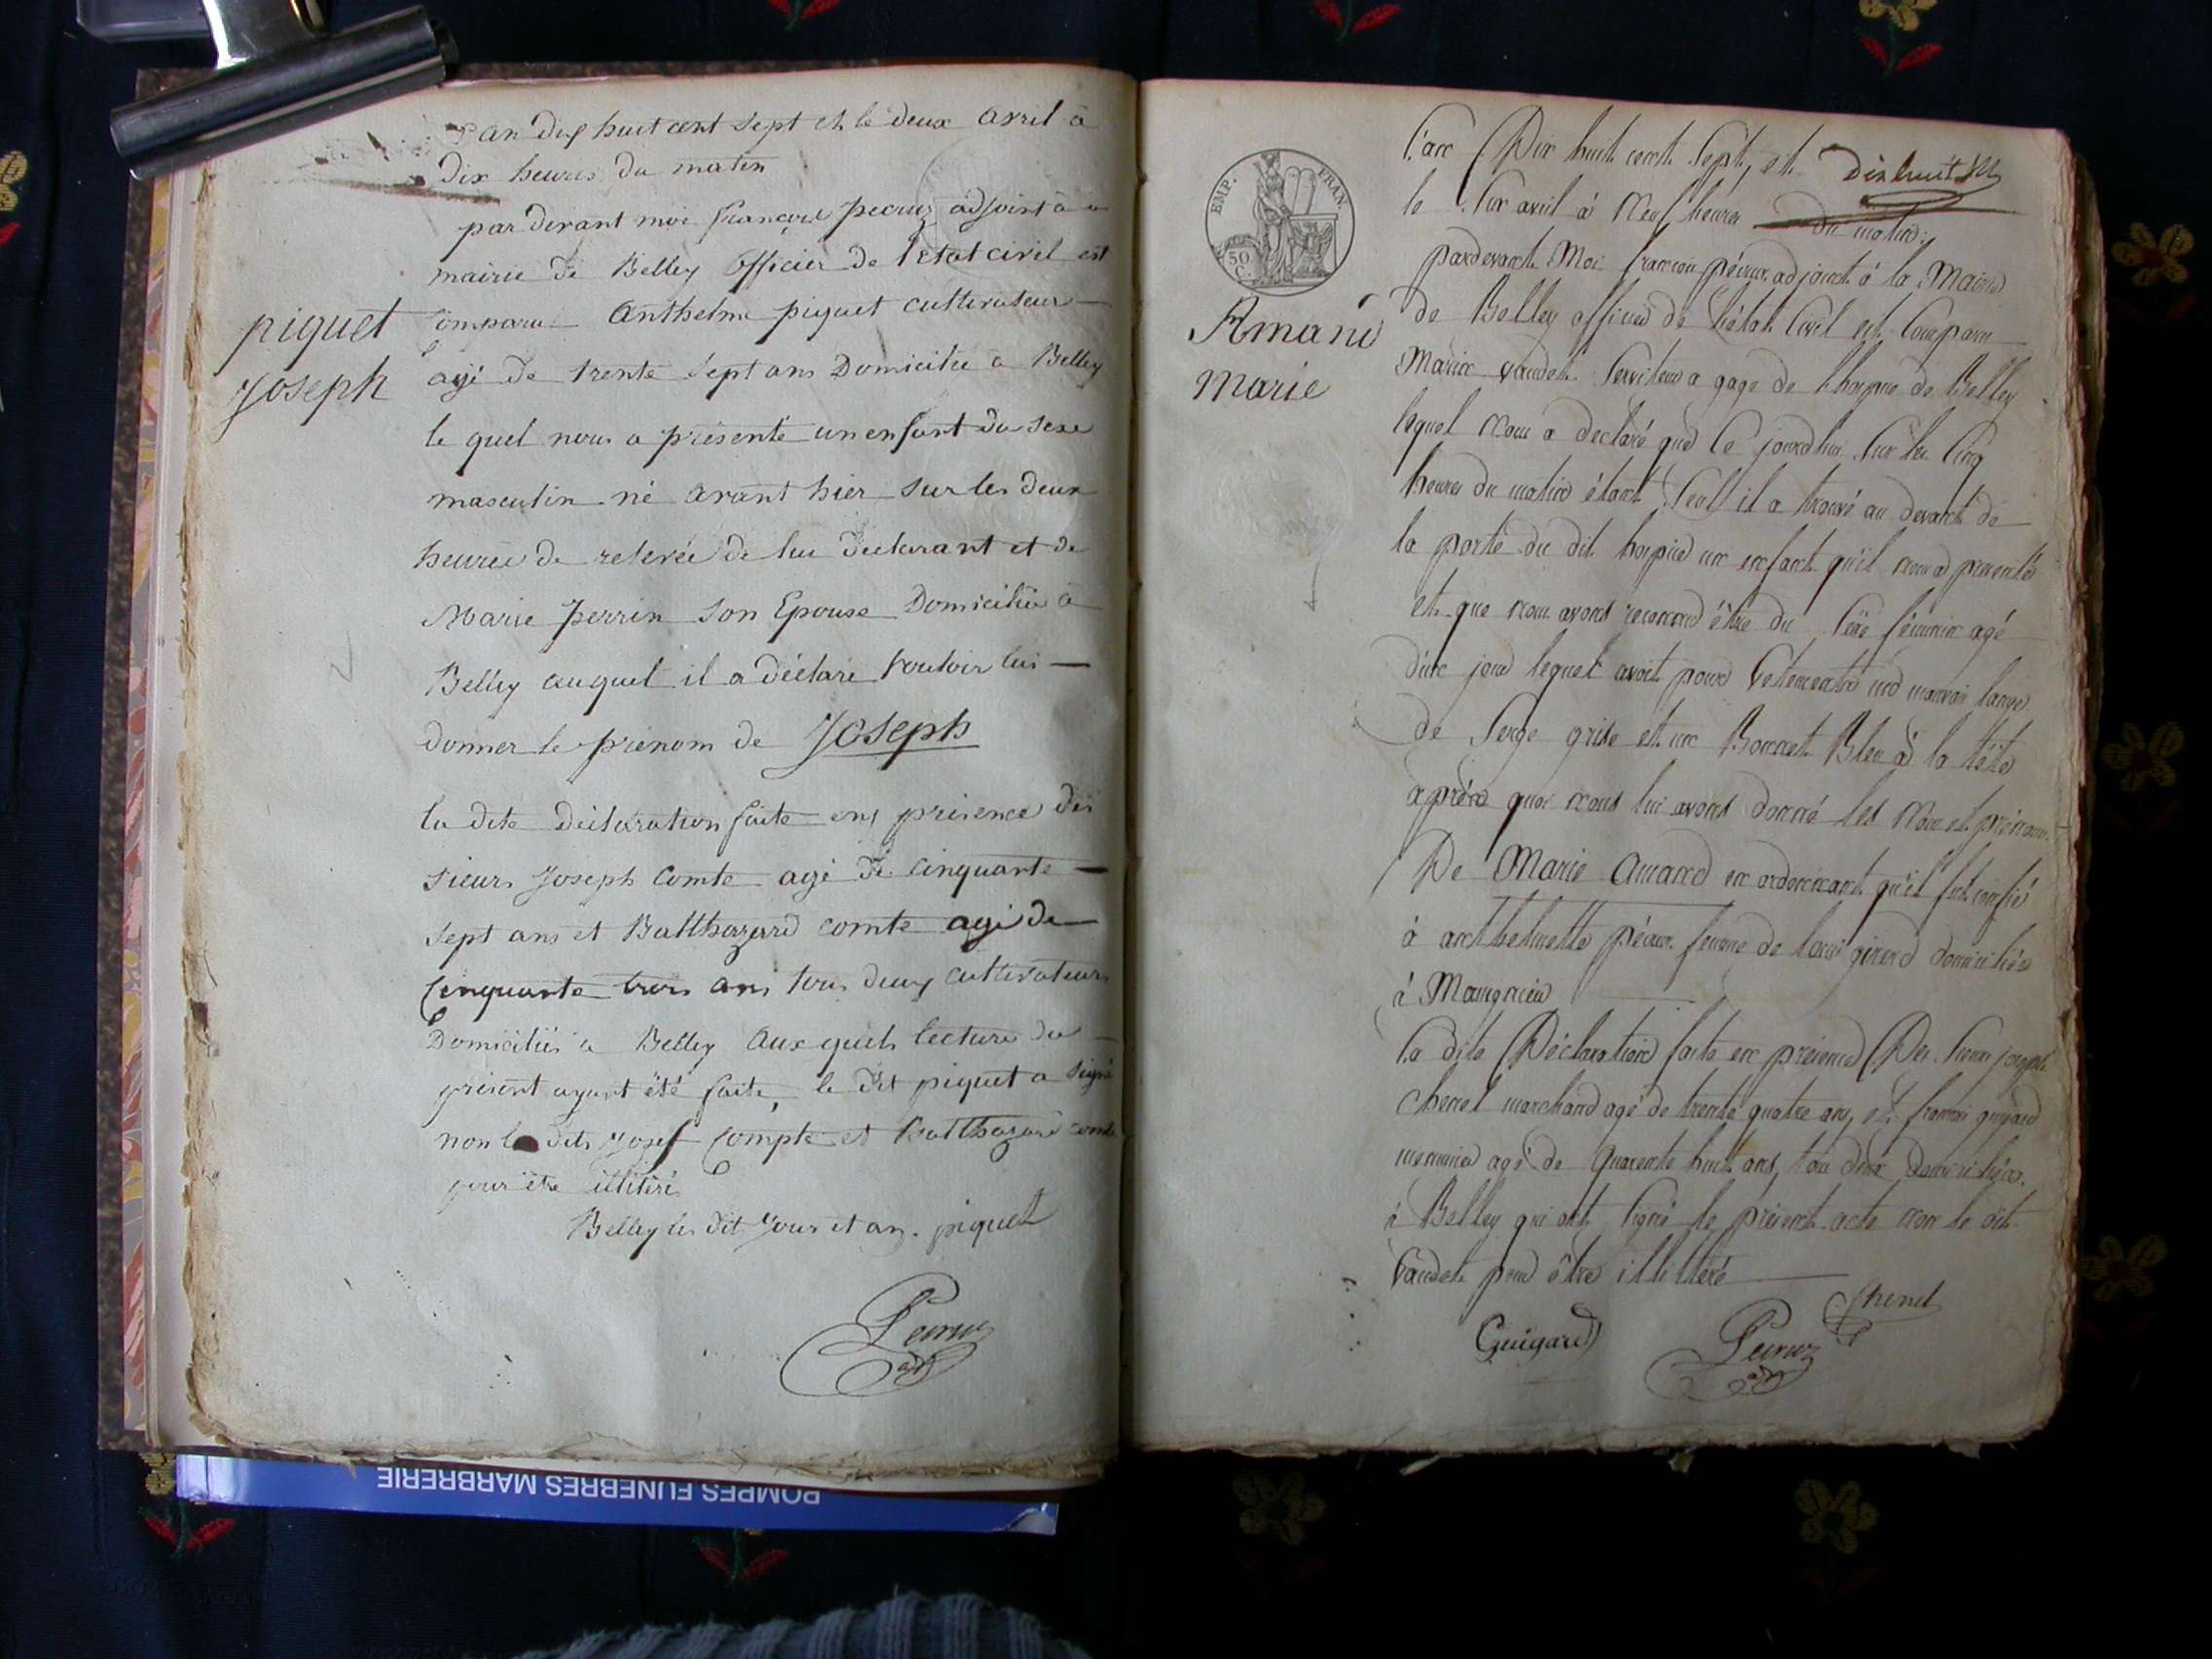 L'an dix huit cent sept et le deux avril à
dix heures du matin
par devant moi françois pecruz adjoint à la
mairie de Belley officier de l'Etat civil est
comparu Anthelme piquet cultivateur
piquet
Joseph
agé de trente sept ans Domicilié à Belley
le quel nous a présenté un enfant du sexe
masculin né avant hier sur les deux
heures de relevée de lui déclarant et de
Marie perrin son Epouse Domiciliée à
Belley auquel il a déclaré vouloir lui
donner le prénom de Joseph
la dite Déclaration faite en présence des
sieurs Joseph Comte agé de cinquante
sept ans et Balthazard comte agé de
Cinquante trois ans tous deux cultivateurs
Domiciliés à Belley aux quels lecture du
présent ayant été faite, le dit piquet a signé
non les dits Josef Compte et Balthazard comte
pour être illitéré
Belley les dit jour et an. piquet
Pecruz
adj
EMP. FRAN.
50
C.
Amand
Marie
L'an Dix huit cent Sept, et Dixhuit
le Six avril à Neuf heures du matin
pardevant Moi francois pécruz adjoint à la Mairie
de Belley officier de l'état Civil est Comparu
Marin vaudet Serviteur a gage de l'hospice de Belley
lequel nous a declaré que Ce jourd'hui Sur les Cinq
heures du matin étant Seul il a trouvé au devant de
la porte du dit hospice un enfant qu'il nous a presenté
et que nous avons reconnu être du Sexe féminin agé
d'un jour lequel avoit pour Vêtements un mauvais lange
de Serge grise et un Bonnet Bleu à la tête
après quoi nous lui avons donné les Nom et prénom
De Marie Amand en ordonnant qu'il fut confié
à anthelmette pécruz femme de louis girerd domiciliée
à Maugnieu
La dite Déclaration faite en présence Des Sieurs joseph
chenel marchand agé de trente quatre ans, et francois guigard
menuisier agé de quarente huit ans, tous deux domiciliés
à Belley qui ont Signé le présent acte non le dit
Vaudet pour être illittéré
Chenel
Guigard
Pecruz
adj
POMPES FUNEBRES MARBRERIE